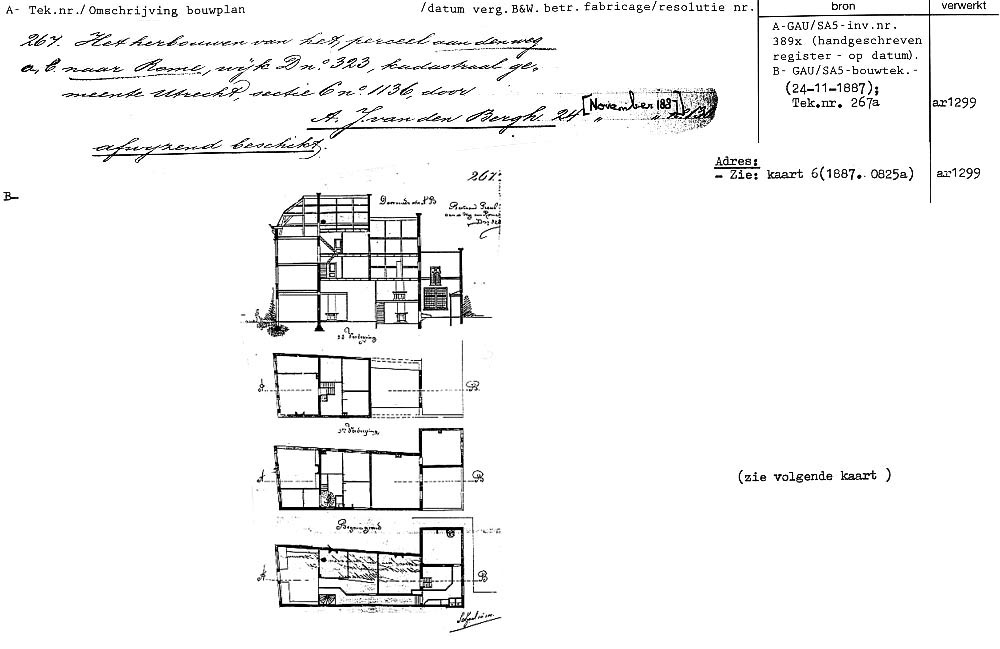 A- Tek.nr./Omschrijving bouwplan /datum verg.B&W. betr. fabricage/resolutie nr.
bron
verwerkt
267. Het herbouwen van het perceel aan den weg
a, b. naar Rome, wijk D nº 323, kadastraal ge-
meente Utrecht, sectie C nº 1136, door
A. J. van den Bergh. 24 „ [November 188 ] „
afwijzend beschikt.
A-GAU/SA5-inv.nr.
389x (handgeschreven
register - op datum).
B- GAU/SA5-bouwtek.-
(24-11-1887);
Tek.nr. 267a
ar1299
Adres:
- Zie: kaart 6(1887. 0825a)
ar1299
B-
267.
Doorsnede A B
Bestaand Perceel
aan de weg naar Rome
D nº 323
2e Verdieping
A
B
1e Verdieping
A
B
Begane grond
A
B
Schaal
(zie volgende kaart )